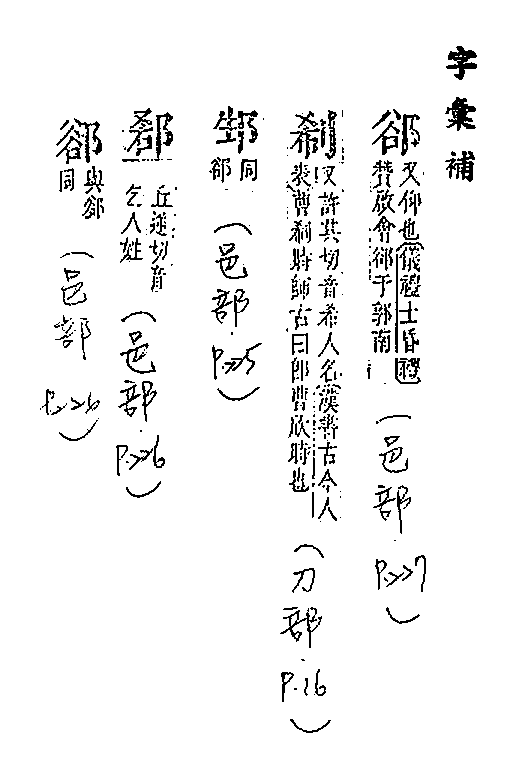 字彙補
郤 又仰也儀禮士昏禮
贊啟會郤于郭南
(邑部 P.227)
㓩 又許其切音希人名漢書古今人
表曹㓩時師古曰郎曹欣時也
(刀部 P.16)
同
郤
(邑部 P.225)
郗 丘逆切音
乞人姓
(邑部 P.226)
與郤
同
(邑部 P.226)